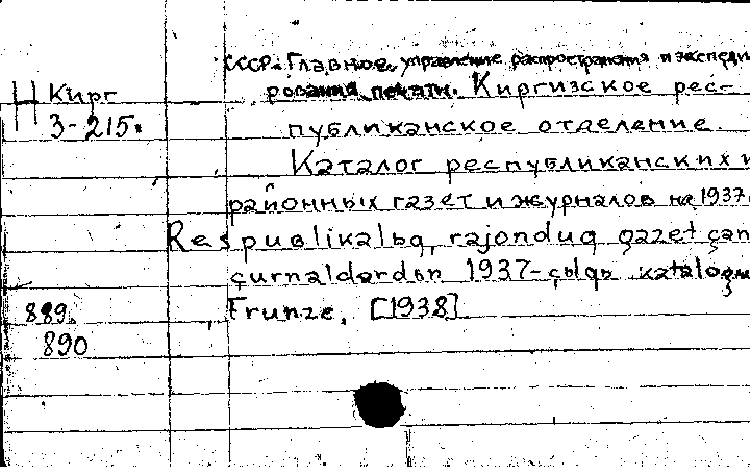 СССР. Главное управление распространения и экспеди
рования печати. Киргизское рес-
Н Кирг
3-215.
публиканское отделение.
Каталог республиканских и
районных газет и журналов на 1937
Respublikalьq, rajonduq gazet çan
çurnaldardьn 1937-çьlqь katalog
Frunze, [1938]
889.
890